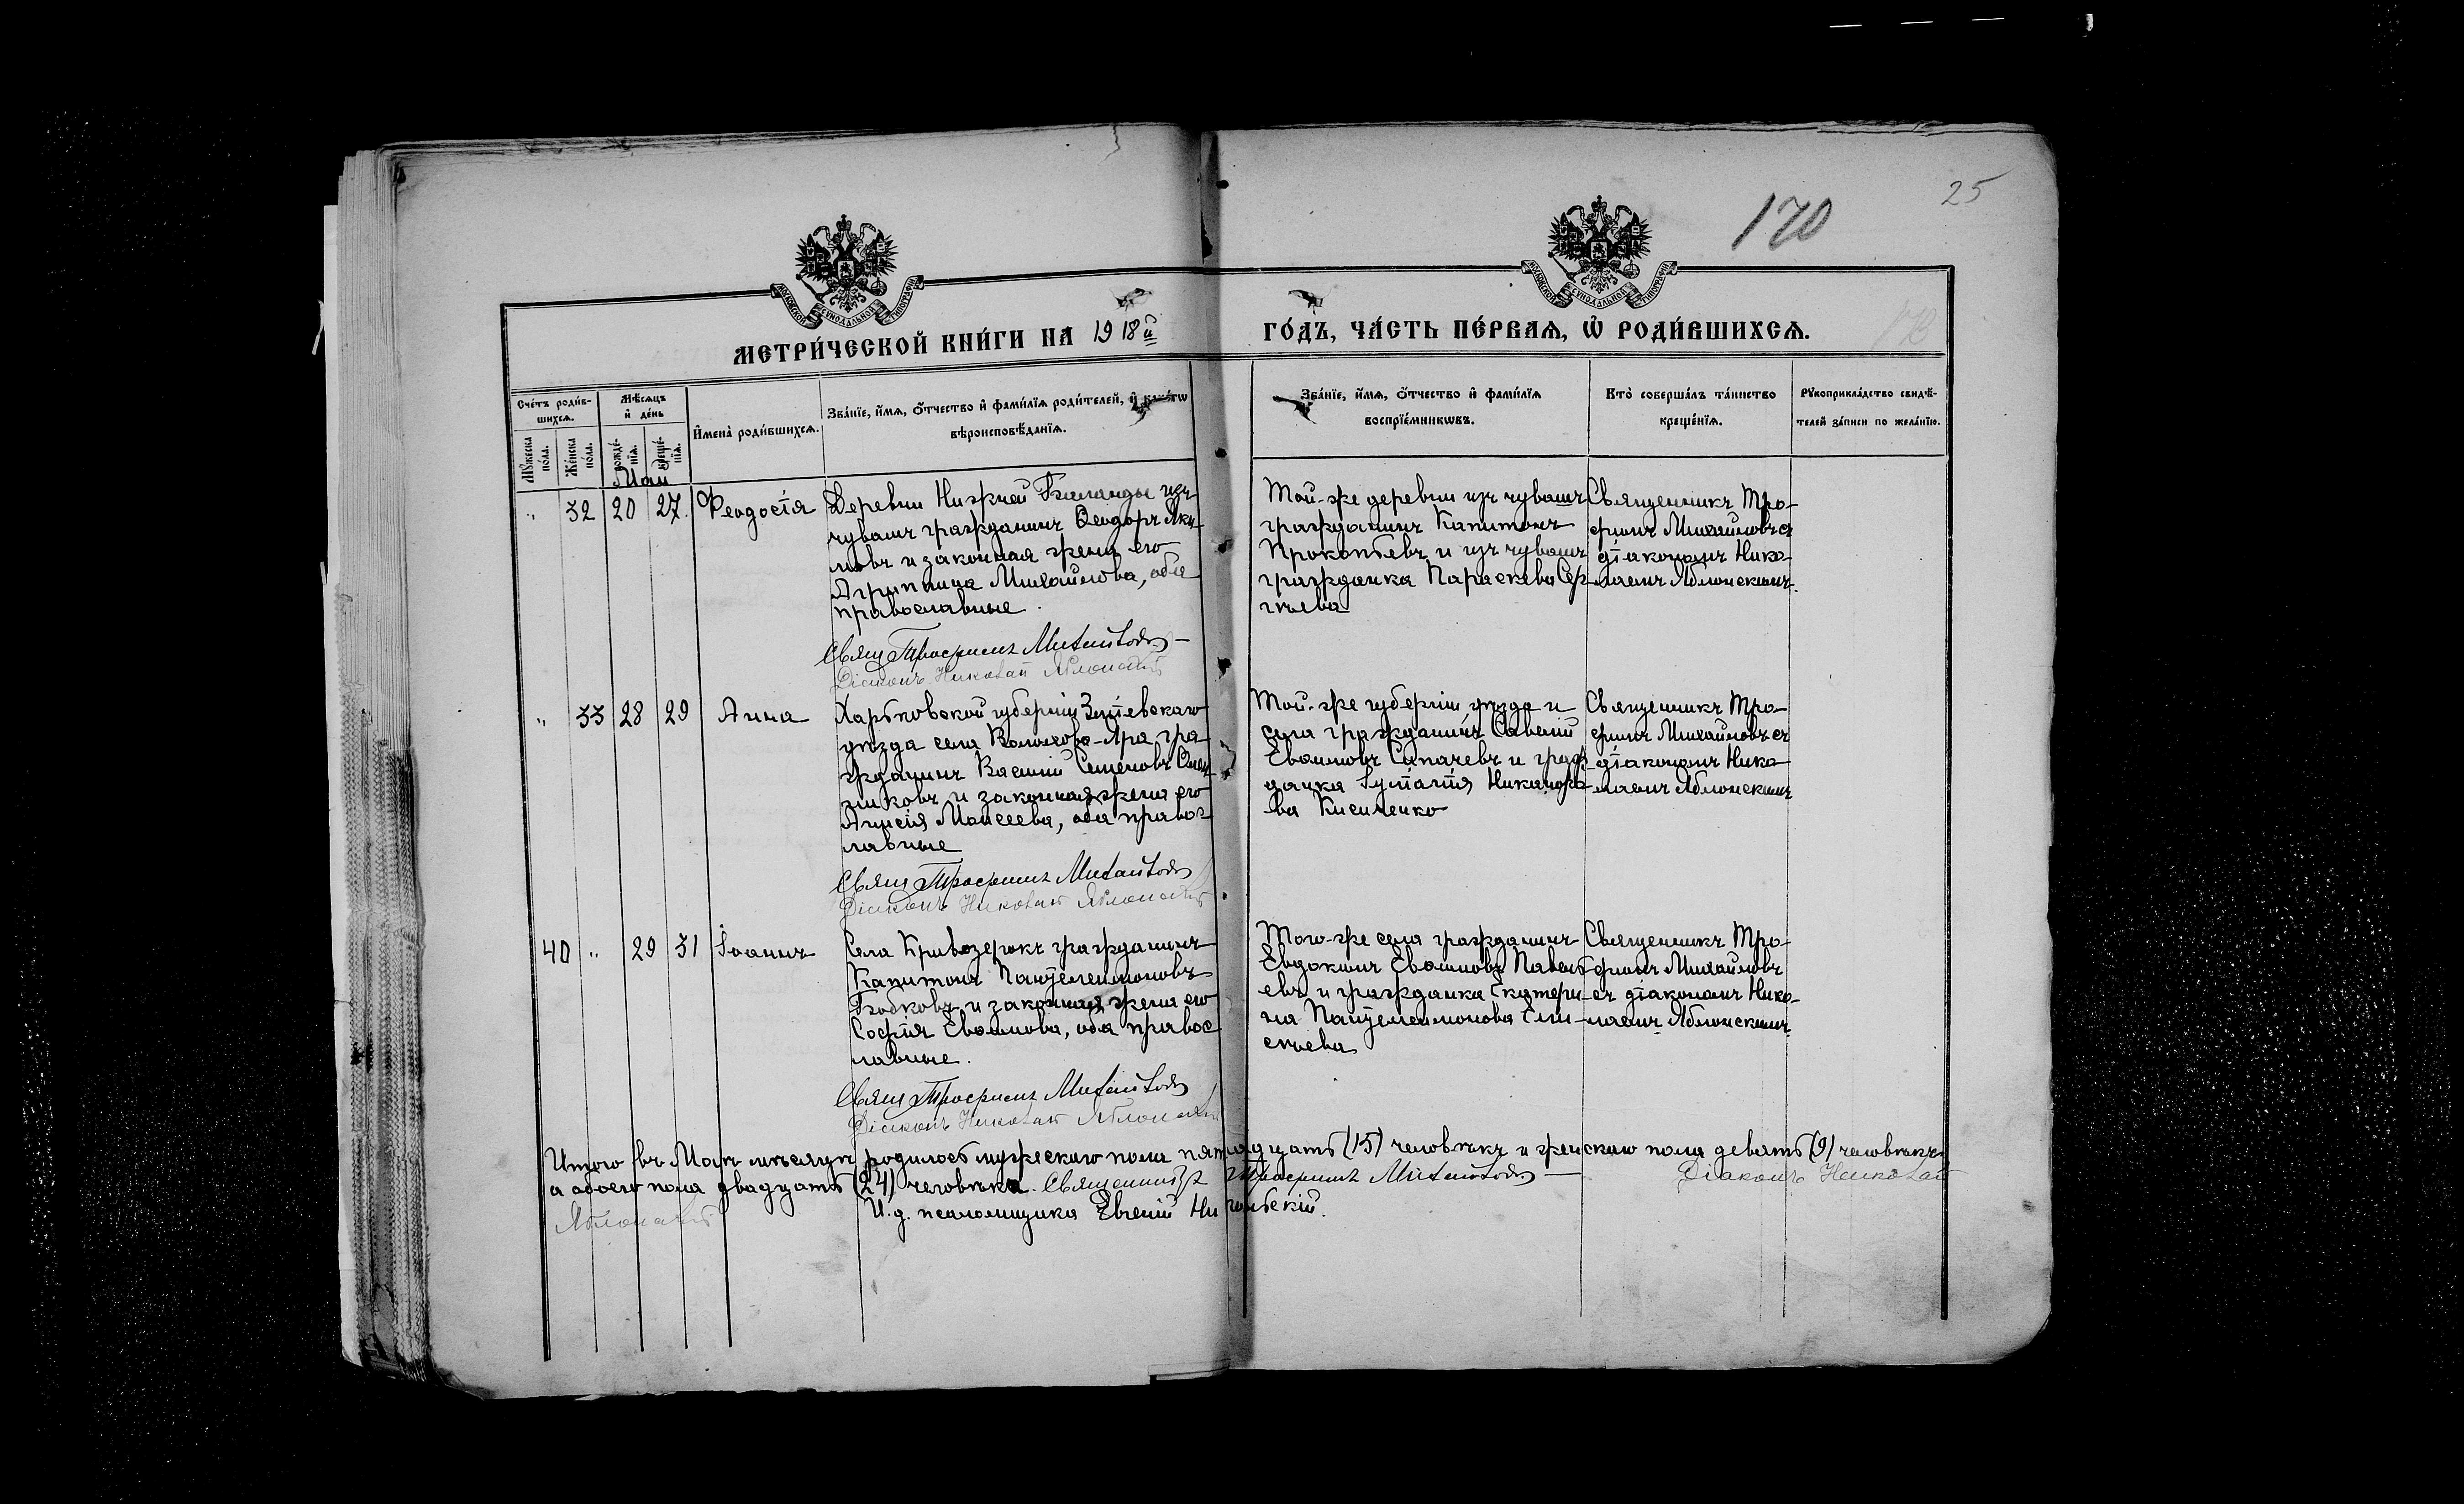 25
170
МОСКОВСКОЙ СУНОДАЛЬНОЙ ТИПОГРАФІИ
МОСКОВСКОЙ СУНОДАЛЬНОЙ ТИПОГРАФІИ
МЕТРИ́ЧЕСКОЙ КНИ́ГИ НА 1918й ГО́ДЪ, ЧА́СТЬ ПЕ́РВАѦ, Ѡ҆ РОДИ́ВШИХСѦ.
Сче́тъ роди́в-
шихсѧ.
Мꙋ́жеска
по́ла.
Же́нска
по́ла.
Мѣ́сѧцъ
и҆ де́нь
рожде́-
нїѧ.
креще́-
нїѧ.
И҆мена̀ роди́вшихсѧ.
Зва́нїе, и҆́мѧ, ѻ҆́тчество и҆ фами́лїѧ роди́телей, и҆ како́гѡ
вѣроисповѣ́данїѧ.
Зва́нїе, и҆́мѧ, ѻ҆́тчество и҆ фами́лїѧ
воспрїе́мникѡвъ.
Кто̀ соверша́лъ та́инство
креще́нїѧ.
Рꙋкоприкла́дство свидѣ́-
телей за́писи по жела́нїю.
Маи
„ 32 20 27. Феодосія
Деревни Нижней изъ
чувашъ гражданинъ Ѳеодоръ Яки-
мовъ и законная жена его
Агриппина Михайлова, оба
православные.
Свящ Трофимъ Михайловъ
Діаконъ Николай Яблонскій
Той-же деревни изъ чувашъ
гражданинъ Капитонъ
Прокопьевъ и изъ чувашъ
гражданка Параскева Сер-
гѣева
Священникъ Тро-
фимъ Михайловъ съ
діакономъ Нико-
лаемъ Яблонскимъ.
„ 33 28 29 Анна
Харьковской губерніи Зміевскаго
уѣзда села Яра гра-
жданинъ Василій Семеновъ
и законная жена его
Анисія Моисеева, оба правос-
лавные
Свящ Трофимъ Михайловъ
Діаконъ Николай Яблонскій
Той-же губерніи уѣзда и
села гражданинъ Савелій
Евѳимовъ и граж-
данка Никанoро-
ва Кисиленко
Священникъ Тро-
фимъ Михайловъ съ
діакономъ Нико-
лаемъ Яблонскимъ
40 „ 29 31 Іоаннъ
Села Кривозерокъ гражданинъ
Капитонъ Пантелеимоновъ
и законная жена его
Софія Евѳимова, оба правос-
лавные.
Свящ Трофимъ Михайловъ
Діаконъ Николай Яблонскій
Того-же села гражданинъ
Евдокимъ Евѳимовъ Павель-
евъ и гражданка Екатери-
на Пантелеимонова Ели-
сѣева
Священникъ Тро-
фимъ Михайловъ
съ діакономъ Нико-
лаемъ Яблонскимъ
Итого въ Маѣ мѣсяцѣ родилось мужескаго пола пятнадцать (15) человѣкъ и женскаго пола девять (9) человѣкъ
а обоего пола двадцать (24) человѣка. Священникъ Трофимъ Михайловъ Діаконъ Николай
Яблонскій И. д. псаломщика Евгеній